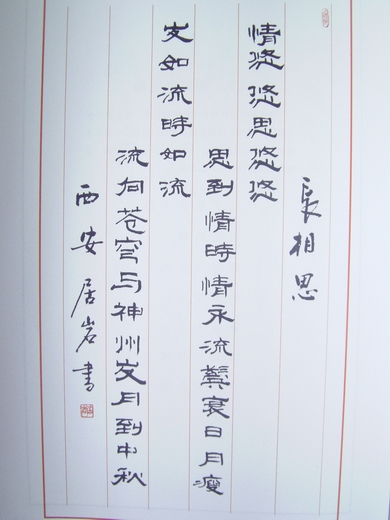 長相思
情悠悠思悠悠
思到情時情永流鬓衰日月瘦
岁如流時如流
流向苍穹与神州岁月到中秋
西安居岩書